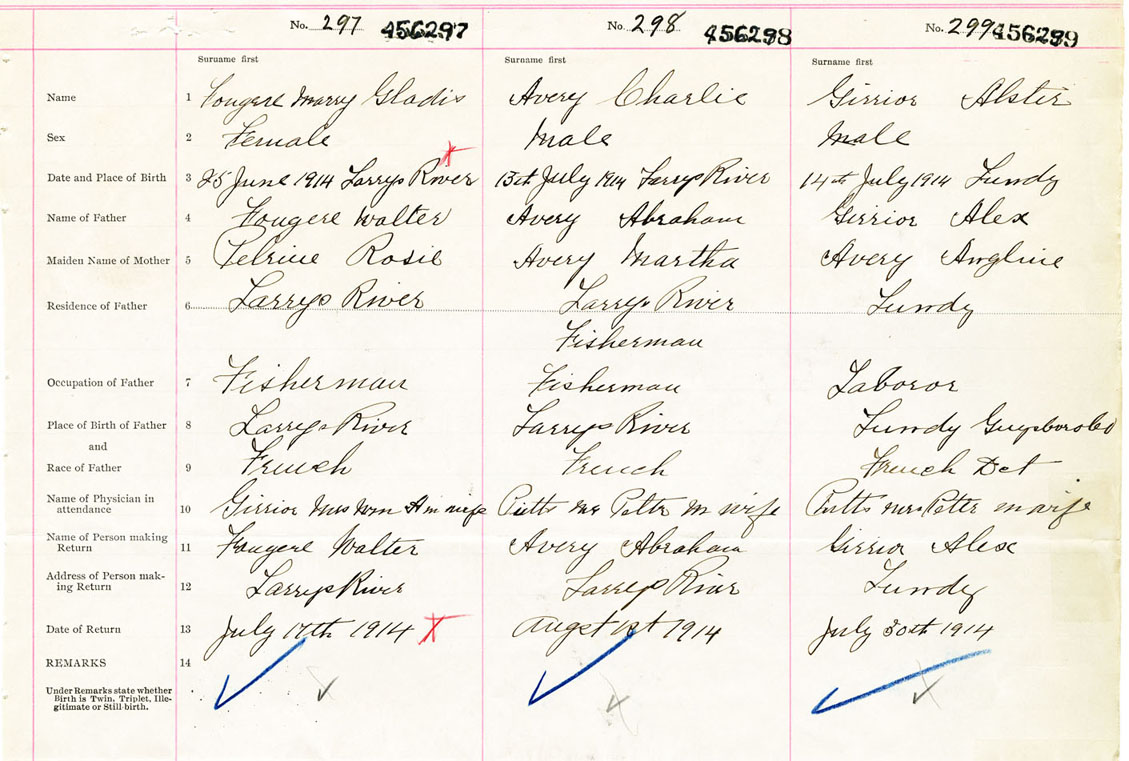 No. 297 456297 No. 298 456298 No. 299 456299
Surname first Surname first Surname first
Name 1 Fougere Marry Gladis Avery Charlie Girrior Alster
Sex 2 Female Male Male
Date and Place of Birth 3 25 June 1914 Larrys River 13th July 1914 Larrys River 14th July 1914 Lundy
Name of Father 4 Fougere Walter Avery Abraham Girrior Alex
Maiden Name of Mother 5 Pelrine Rosie Avery Martha Avery Angline
Residence of Father 6 Larrys River Larrys River Lundy
Fisherman
Occupation of Father 7 Fisherman Fisherman Laboror
Place of Birth of Father 8 Larrys River Larrys River Lundy Guysboro
and
Race of Father 9 French French French
Name of Physician in
attendance 10 Girrior Mrs Wm wife Mr Peter M wife Mrs Peter m wife
Name of Person making
Return 11 Fougere Walter Avery Abraham Girrior Alex
Address of Person mak-
ing Return 12 Larrys River Larrys River Lundy
Date of Return 13 July 17th 1914 X Augst 1st 1914 July 30th 1914
REMARKS 14
Under Remarks state whether
Birth is Twin, Triplet, Ille-
gitimate or Still-birth.